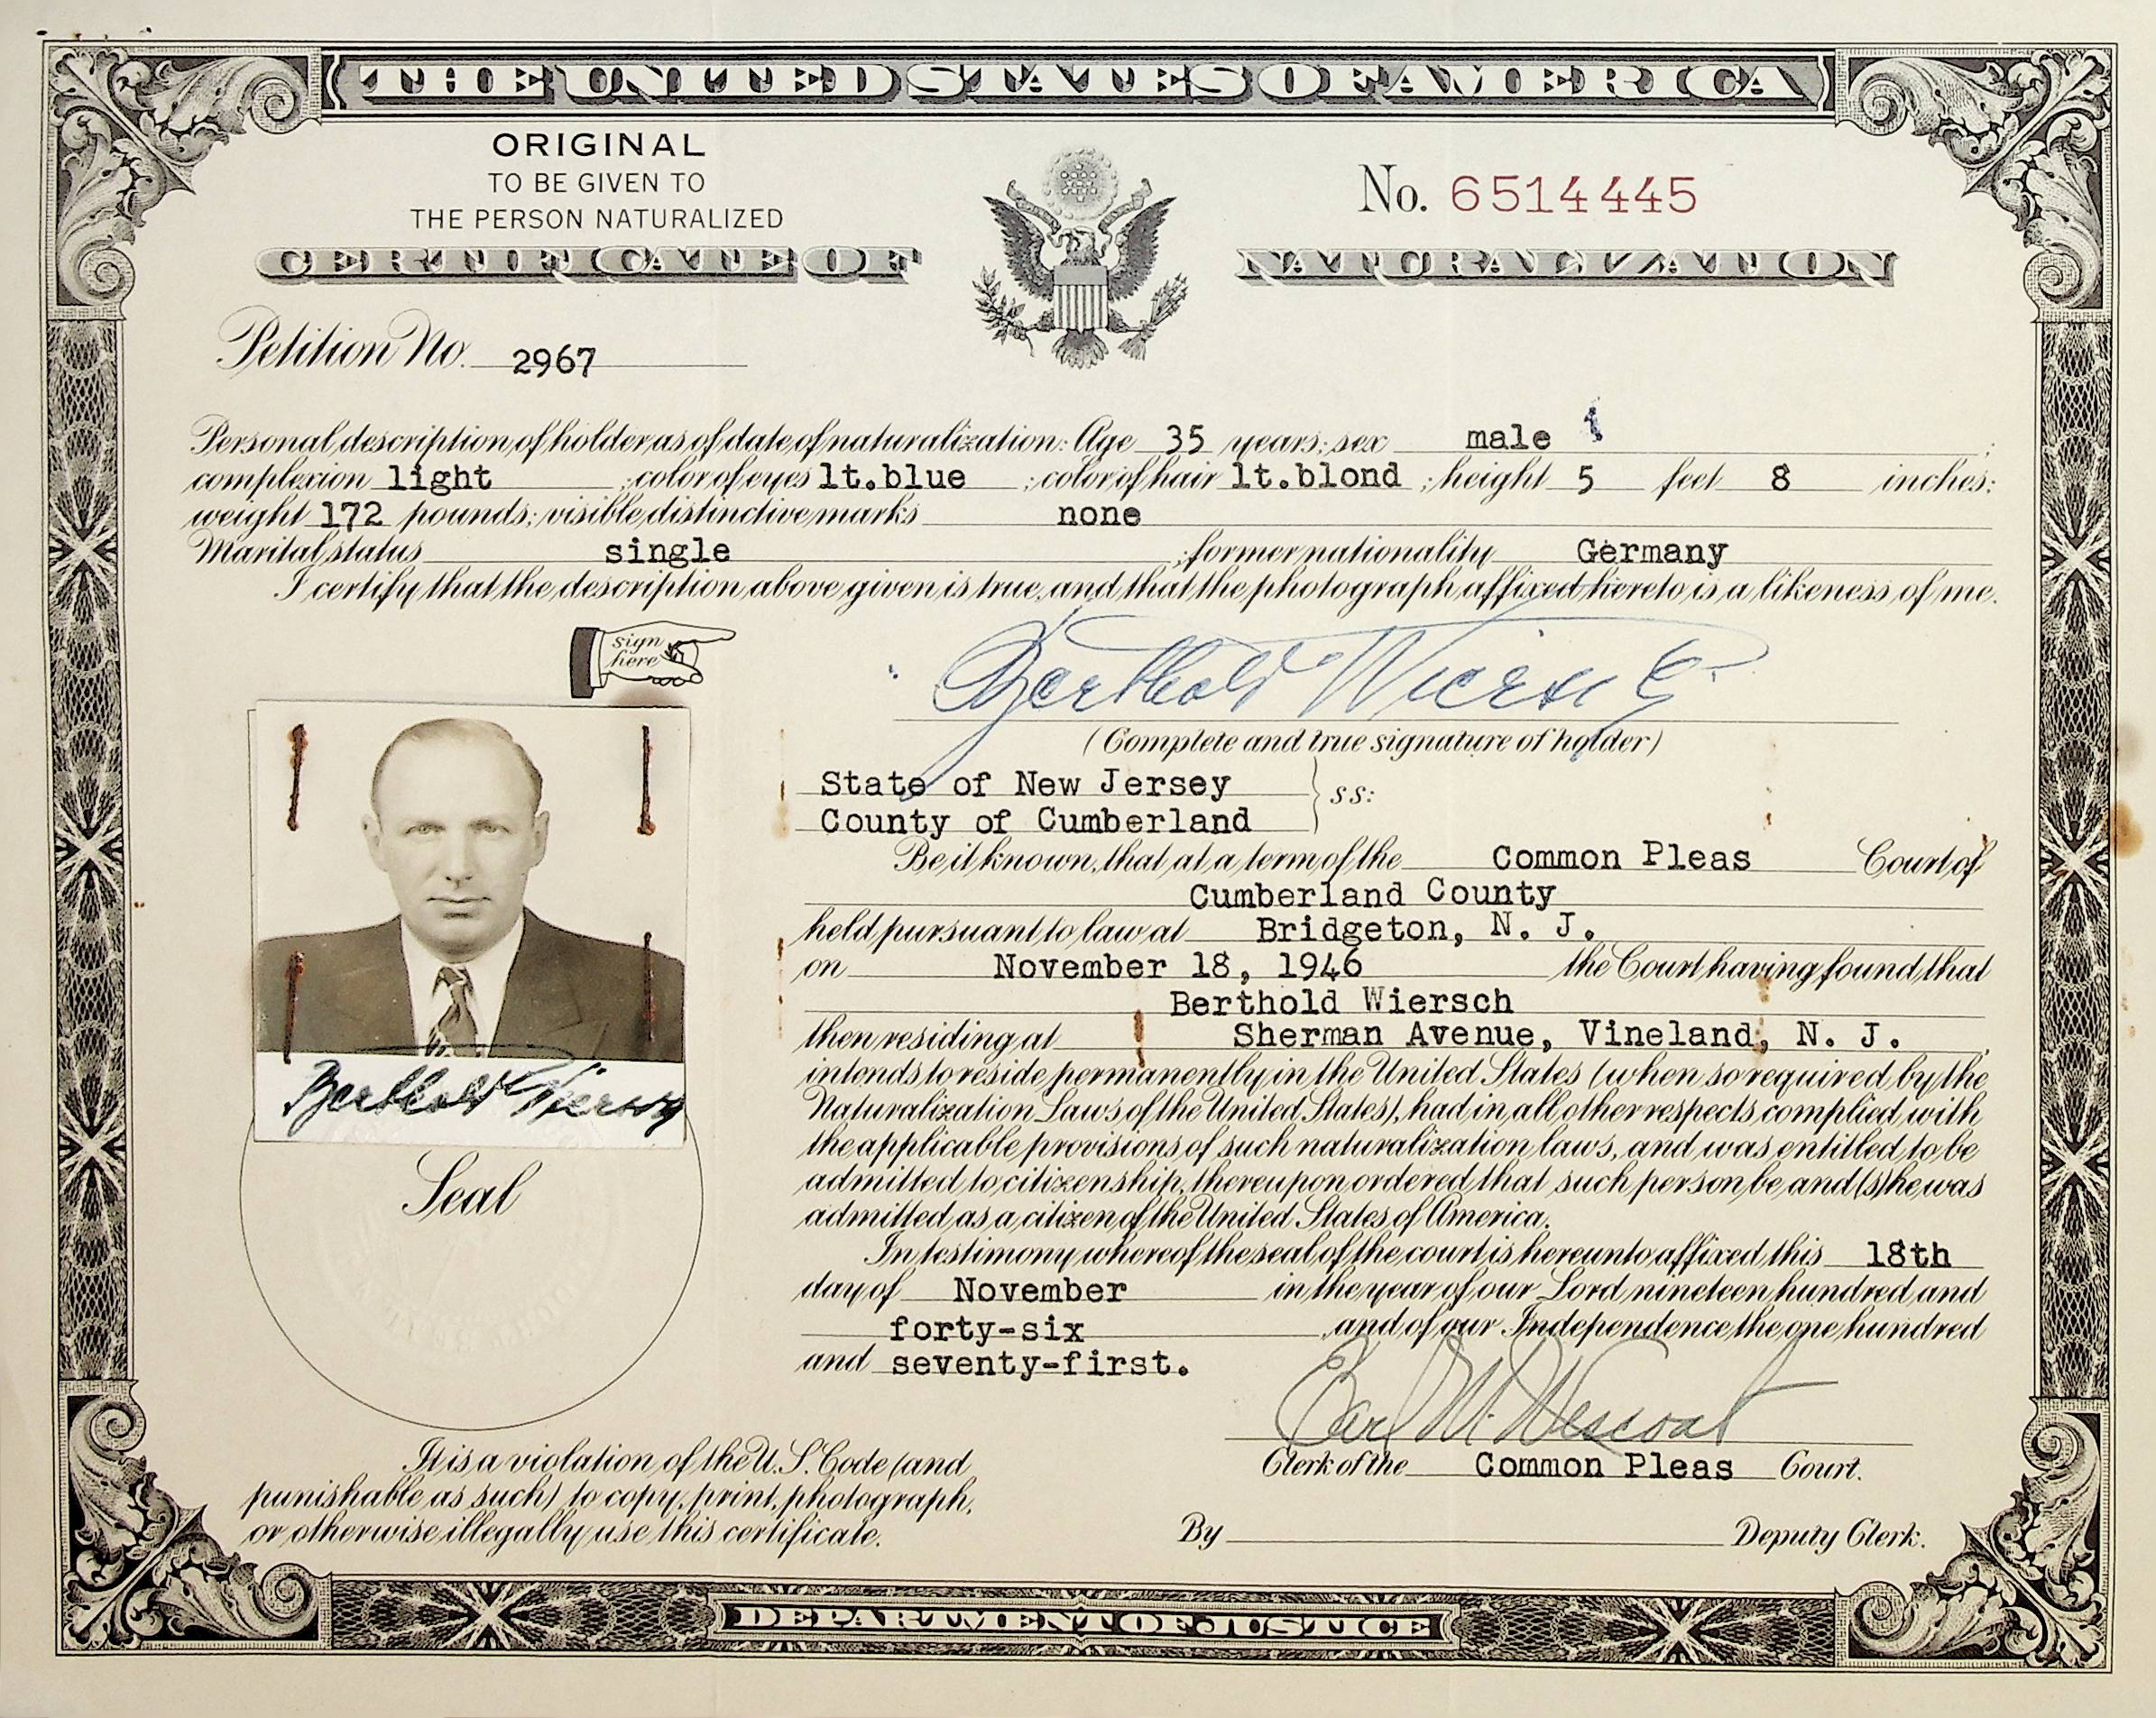 THE UNITED STATES OF AMERICA
ORIGINAL
TO BE GIVEN TO
THE PERSON NATURALIZED
No. 6514445
CERTIFICATE OF NATURALIZATION
Petition No. 2967
Personal description of holder as of date of naturalization: Age 35 years; sex male ;
complexion light ; color of eyes lt.blue ; color of hair lt.blond ; height 5 feet 8 inches;
weight 172 pounds; visible distinctive marks none
Marital status single ; former nationality Germany
I certify that the description above given is true, and that the photograph affixed hereto is a likeness of me.
sign
here
Berthold Wiersch
(Complete and true signature of holder)
State of New Jersey
County of Cumberland } ss:
Be it known, that at a term of the Common Pleas Court of
Cumberland County
held pursuant to law at Bridgeton, N. J.
on November 18, 1946 the Court having found that
Berthold Wiersch
then residing at Sherman Avenue, Vineland, N. J. ,
intends to reside permanently in the United States (when so required by the
Naturalization Laws of the United States), had in all other respects complied with
the applicable provisions of such naturalization laws, and was entitled to be
admitted to citizenship, thereupon ordered that such person be and (s)he was
admitted as a citizen of the United States of America.
In testimony whereof the seal of the court is hereunto affixed this 18th
day of November in the year of our Lord nineteen hundred and
forty-six , and of our Independence the one hundred
and seventy-first.
Berthold Wiersch
Seal
Earl M. Wescoat
Clerk of the Common Pleas Court.
By Deputy Clerk.
It is a violation of the U.S. Code (and
punishable as such) to copy, print, photograph,
or otherwise illegally use this certificate.
DEPARTMENT OF JUSTICE